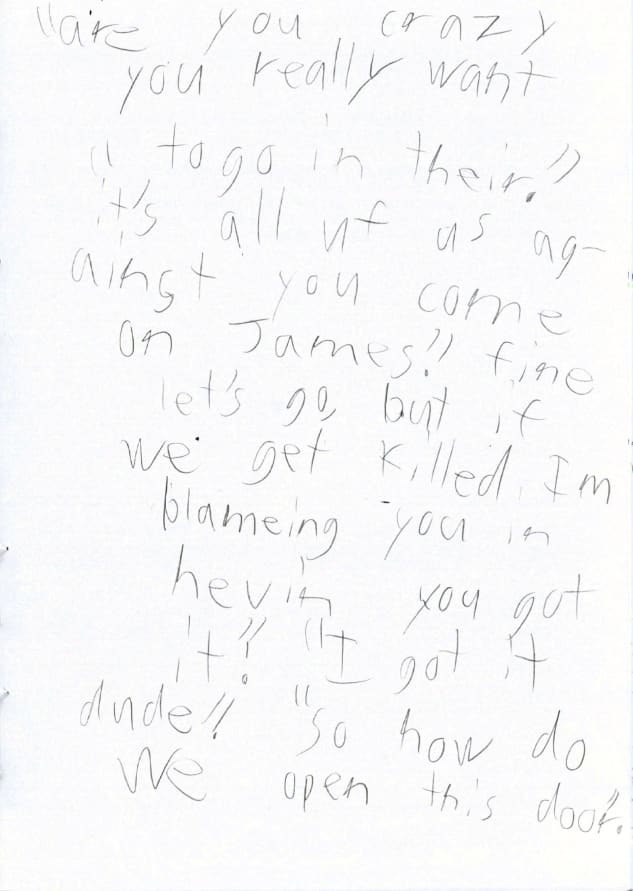 "are you crazy
you really want
" to go in their."
it's all uf us ag-
ainst you come
on James!" fine
let's go, but if
we get killed, Im
blameing you in
hevin you got
it!" "I got it
dude!" "so how do
we open this door".